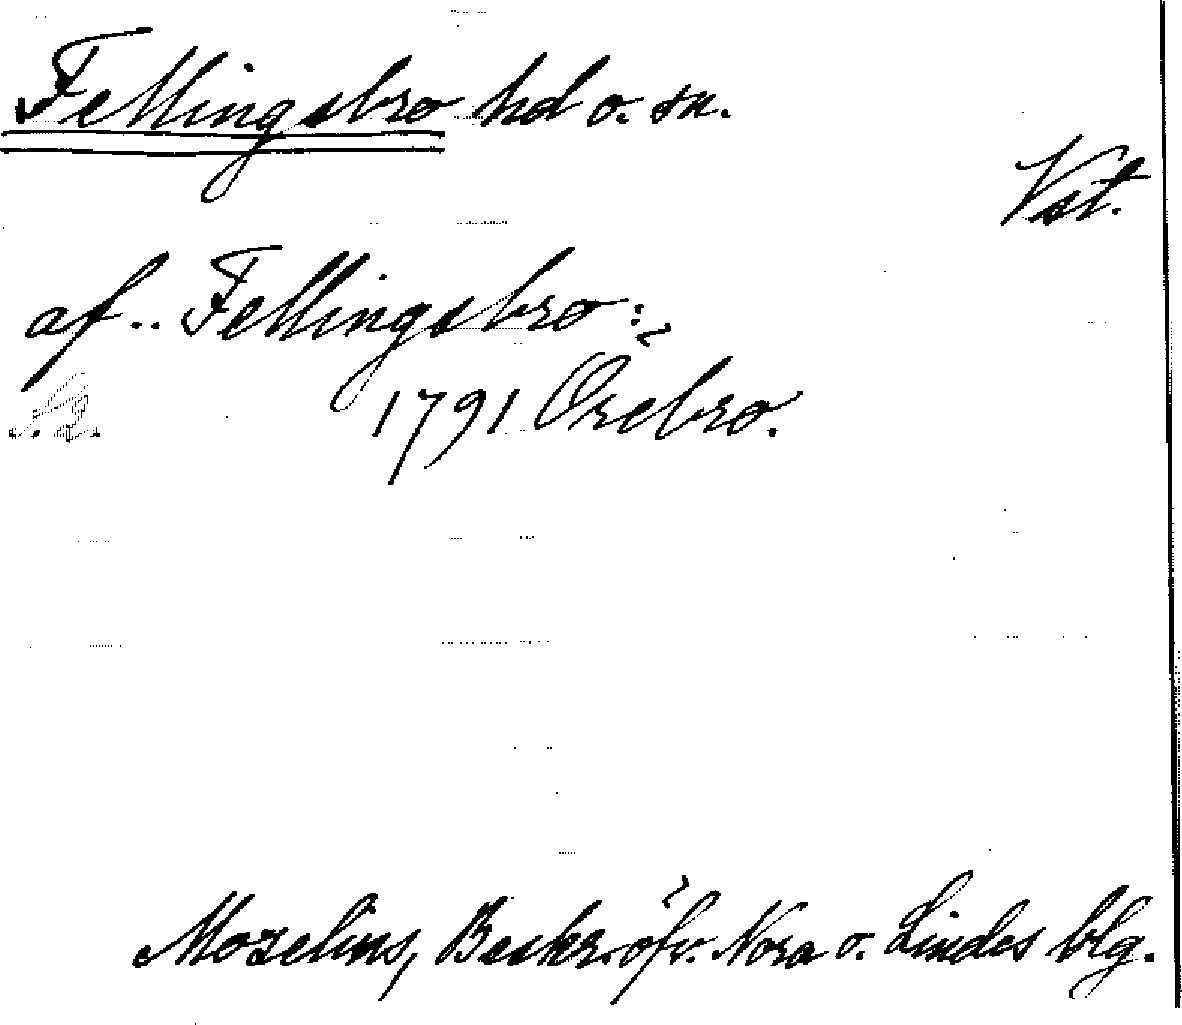 Fellingsbro hd o. sn.
Vst.
af .. Fellingsbro :
1791 Örebro.
Mozelius, Beskr. öfv. Nora o. Lindes blg.